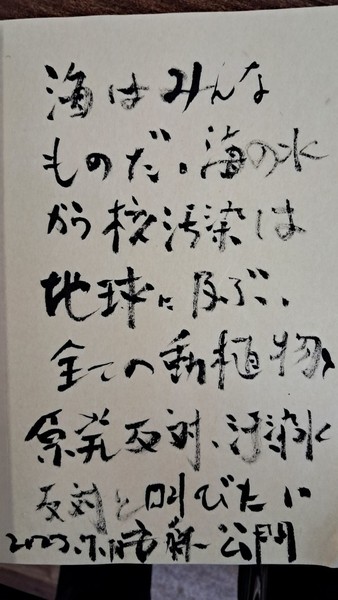 海はみんな
ものだ。海の水
から核汚染は
地球に及ぶ、
全ての動植物、
原発反対、汚染水
反対と叫びたい
公門